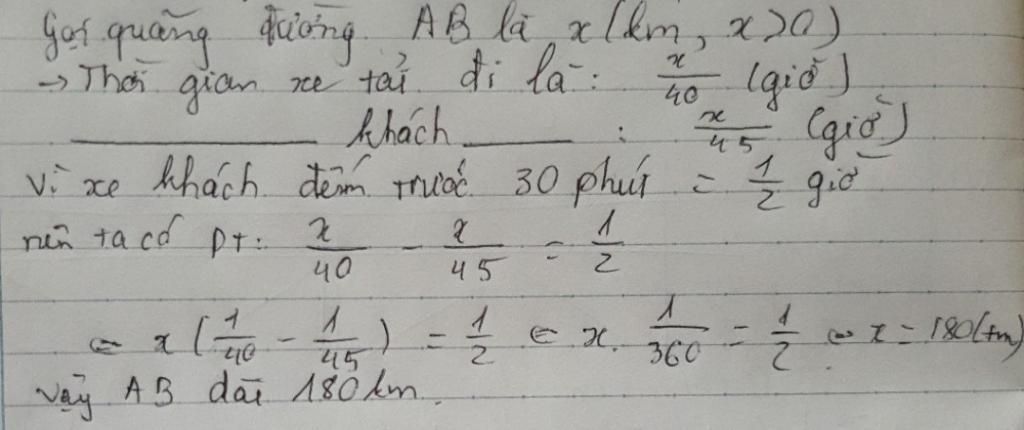 Gọi quãng đường AB là x (km, x>0)
→ Thời gian xe tải đi là: x/40 (giờ)
_______ khách _______ : x/45 (giờ)
Vì xe khách đến trước 30 phút = 1/2 giờ
nên ta có pt: x/40 - x/45 = 1/2
⇔ x (1/40 - 1/45) = 1/2 ⇔ x. 1/360 = 1/2 ⇔ x = 180 (tm)
Vậy AB dài 180 km.